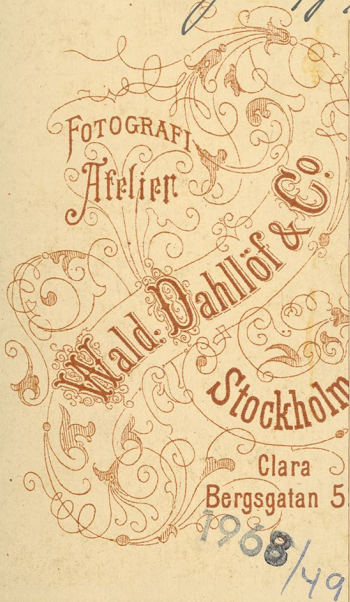 FOTOGRAFI
Atelier
Wald. Dahllöf & Co.
Stockholm
Clara
Bergsgatan 5.
1968/49